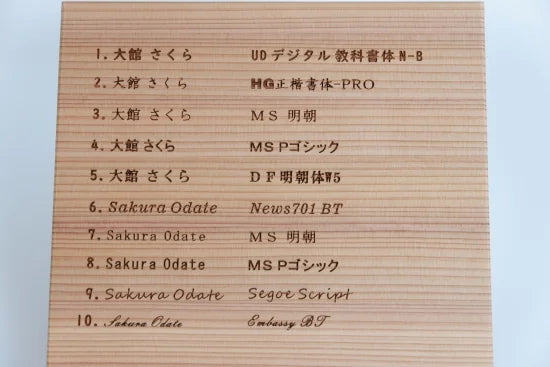 1. 大館 さくら　UD デジタル 教科書体 N-B
2. 大館 さくら　HG正楷書体-PRO
3. 大館 さくら　MS 明朝
4. 大館 さくら　MS Pゴシック
5. 大館 さくら　DF明朝体W5
6. Sakura Odate　News701 BT
7. Sakura Odate　MS 明朝
8. Sakura Odate　MS Pゴシック
9. Sakura Odate　Segoe Script
10. Sakura Odate　Embassy BT